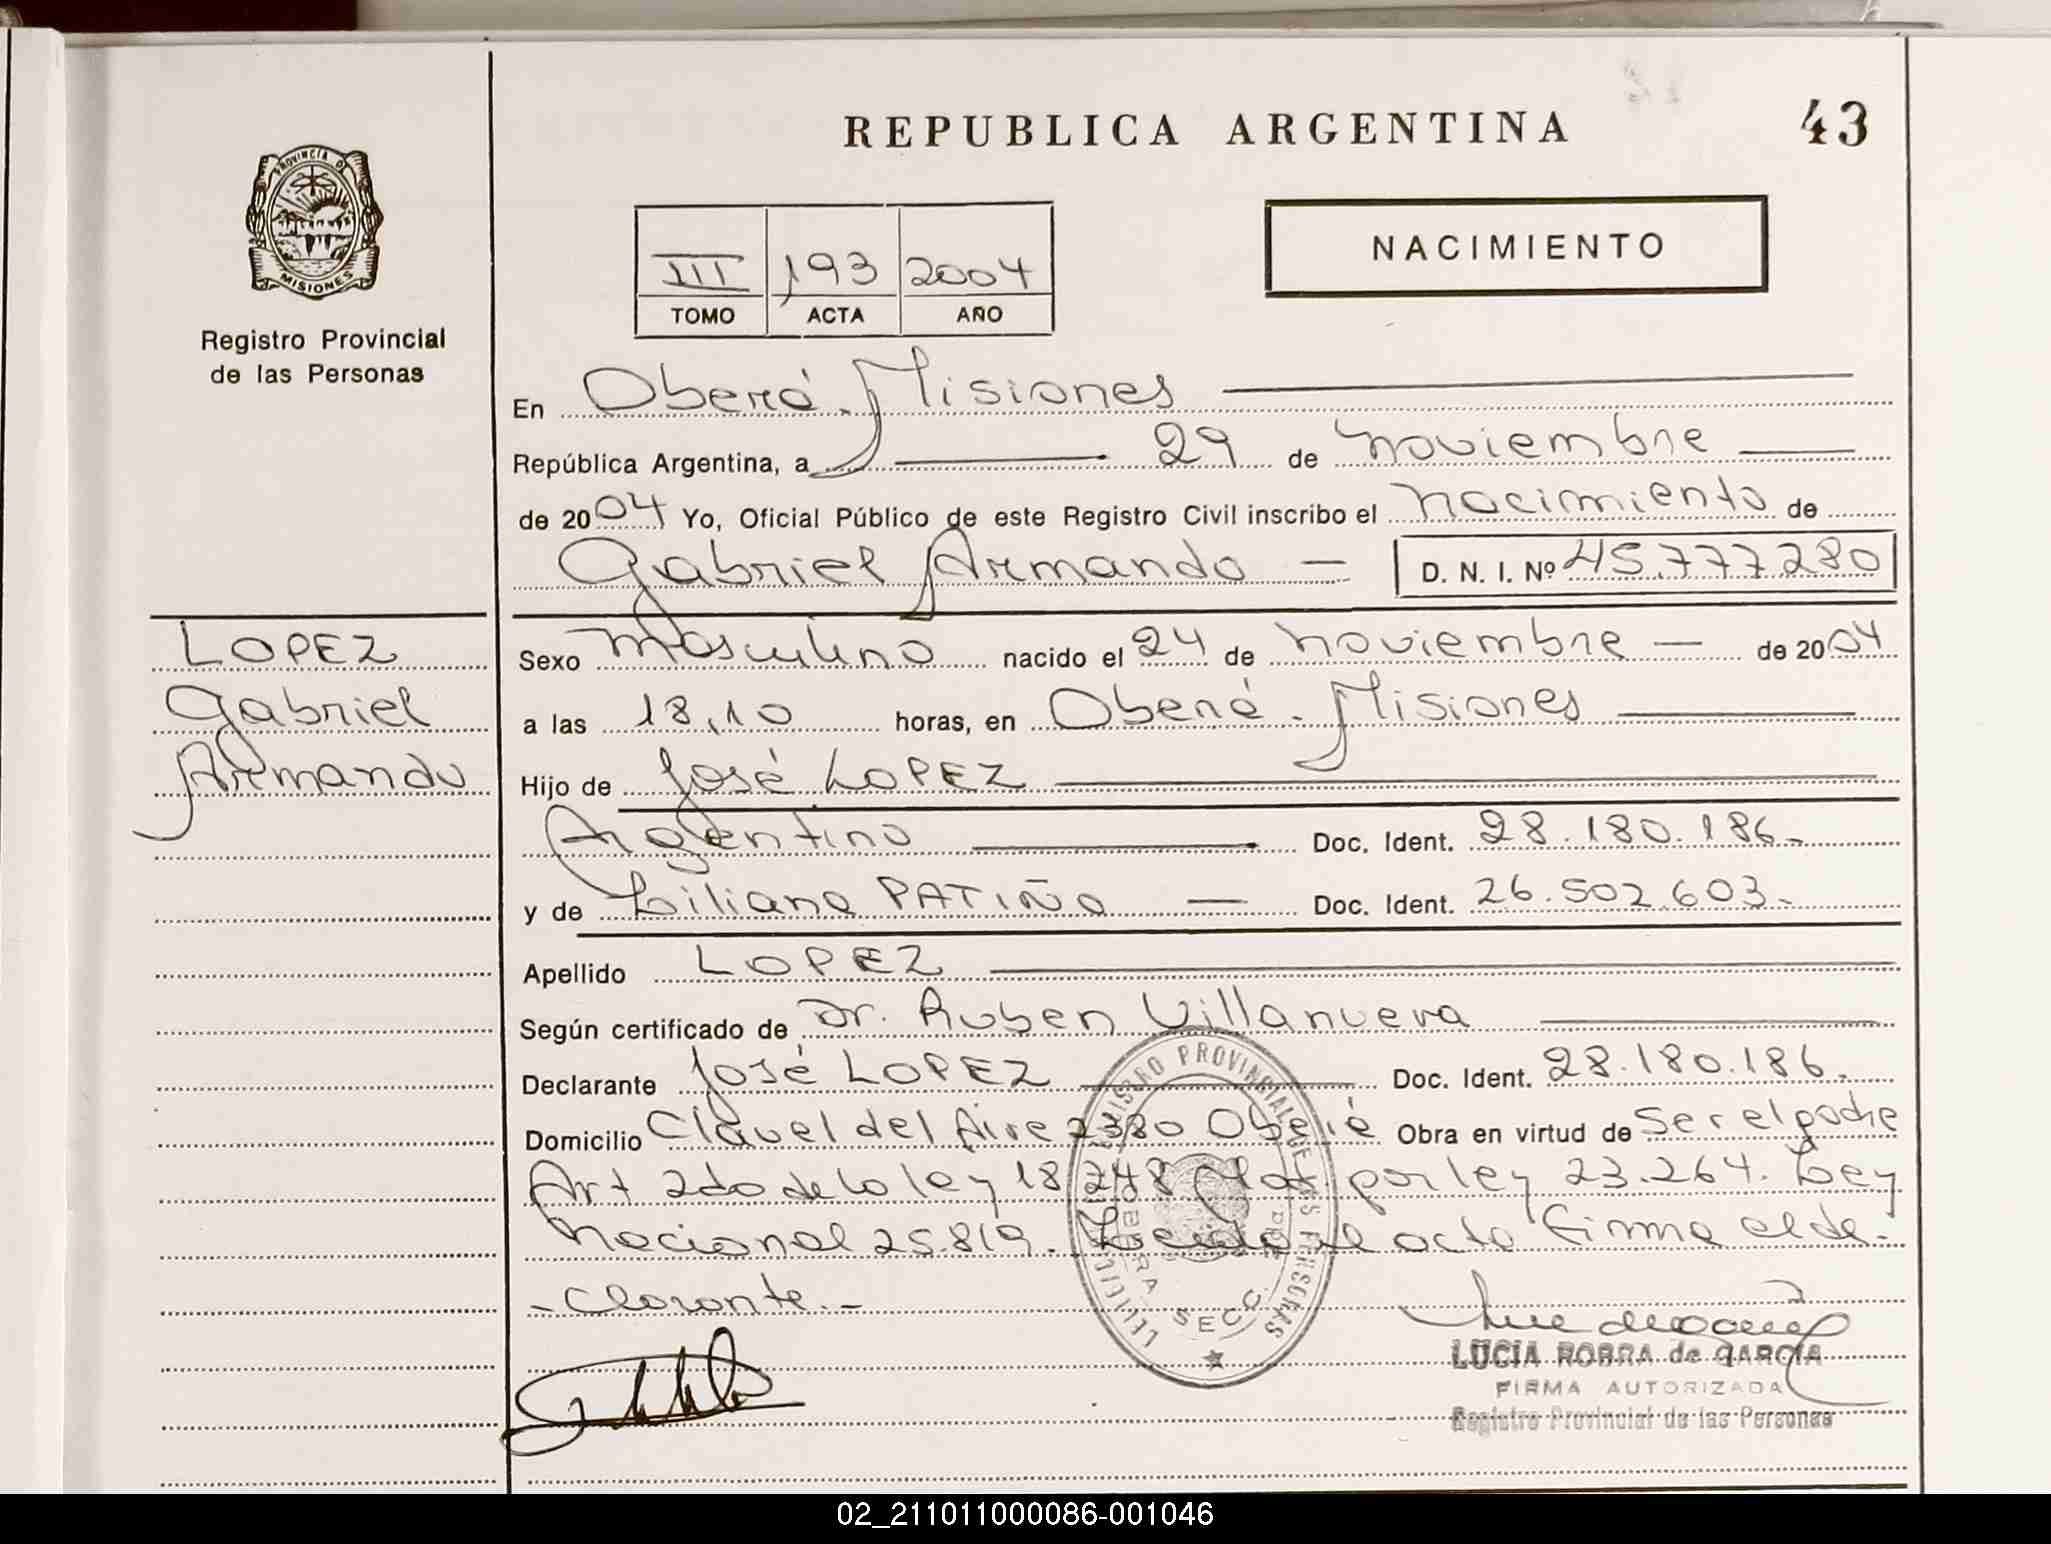 REPUBLICA ARGENTINA
43
PROVINCIA DE
MISIONES
Registro Provincial
de las Personas
III 193 2004
TOMO ACTA AÑO
NACIMIENTO
En Oberá. Misiones
República Argentina, a 29 de noviembre
de 2004 Yo, Oficial Público de este Registro Civil inscribo el nacimiento de
Gabriel Armando D. N. I. Nº 45.777.280
LOPEZ
Gabriel
Armando
Sexo masculino nacido el 24 de noviembre de 2004
a las 18,10 horas, en Oberá. Misiones
Hijo de José LOPEZ
Argentino Doc. Ident. 28.180.186.
y de Liliana PATIÑO Doc. Ident. 26.502.603.
Apellido LOPEZ
Según certificado de Dr. Ruben Villanueva
Declarante José LOPEZ Doc. Ident. 28.180.186.
Domicilio Clavel del Aire 2380 Oberá Obra en virtud de ser el padre
Art 2do de la ley 18.248 por ley 23.264. Ley
Nacional 25.819. Leida el acta firma el de-
-clarante.-
PROVINCIAL DE LAS PERSONAS
SECC.
LUCIA ROBRA de GARCIA
FIRMA AUTORIZADA
Registro Provincial de las Personas
02_211011000086-001046